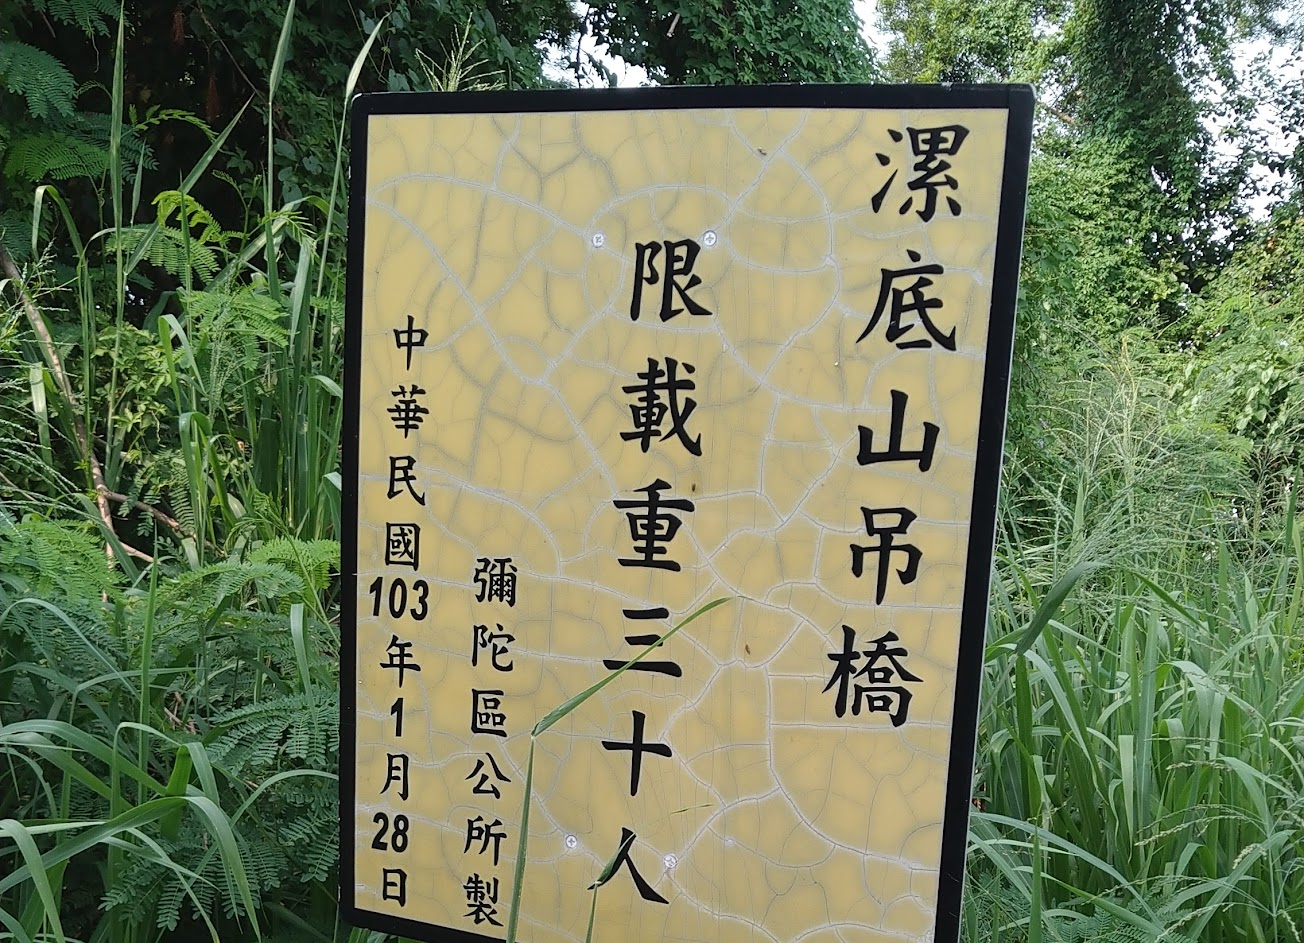 漯底山吊橋
限載重三十人
彌陀區公所製
中華民國103年1月28日